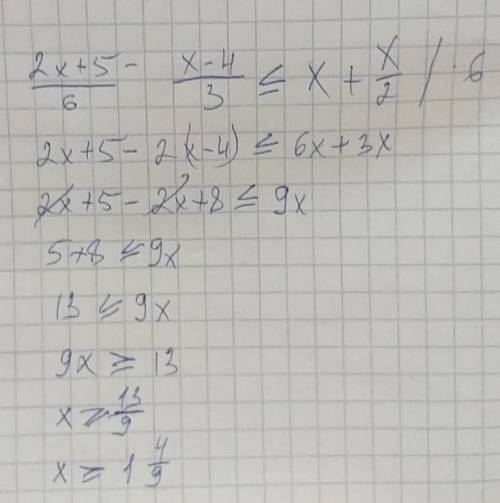 (2x+5)/6 - (x-4)/3 ≤ x + x/2 / ·6
2x+5 - 2(x-4) ≤ 6x+3x
2x+5 - 2x+8 ≤ 9x
5+8 ≤ 9x
13 ≤ 9x
9x ≥ 13
x ≥ 13/9
x ≥ 1 4/9